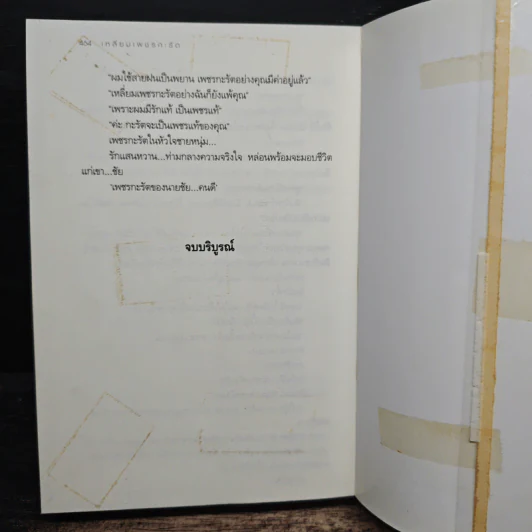 เหลี่ยมเพชรกะรัต
"ผมใช้สายฝนเป็นพยาน เพชรกะรัตอย่างคุณมีค่าอยู่แล้ว"
"เหลี่ยมเพชรกะรัตอย่างฉันก็ยังแพ้คุณ"
"เพราะผมมีรักแท้ เป็นเพชรแท้"
"ค่ะ กะรัตจะเป็นเพชรแท้ของคุณ"
เพชรกะรัตในหัวใจชายหนุ่ม...
รักแสนหวาน...ท่ามกลางความจริงใจ หล่อนพร้อมจะมอบชีวิต
แก่เขา...ชัย
'เพชรกะรัตของนายชัย...คนดี'
จบบริบูรณ์